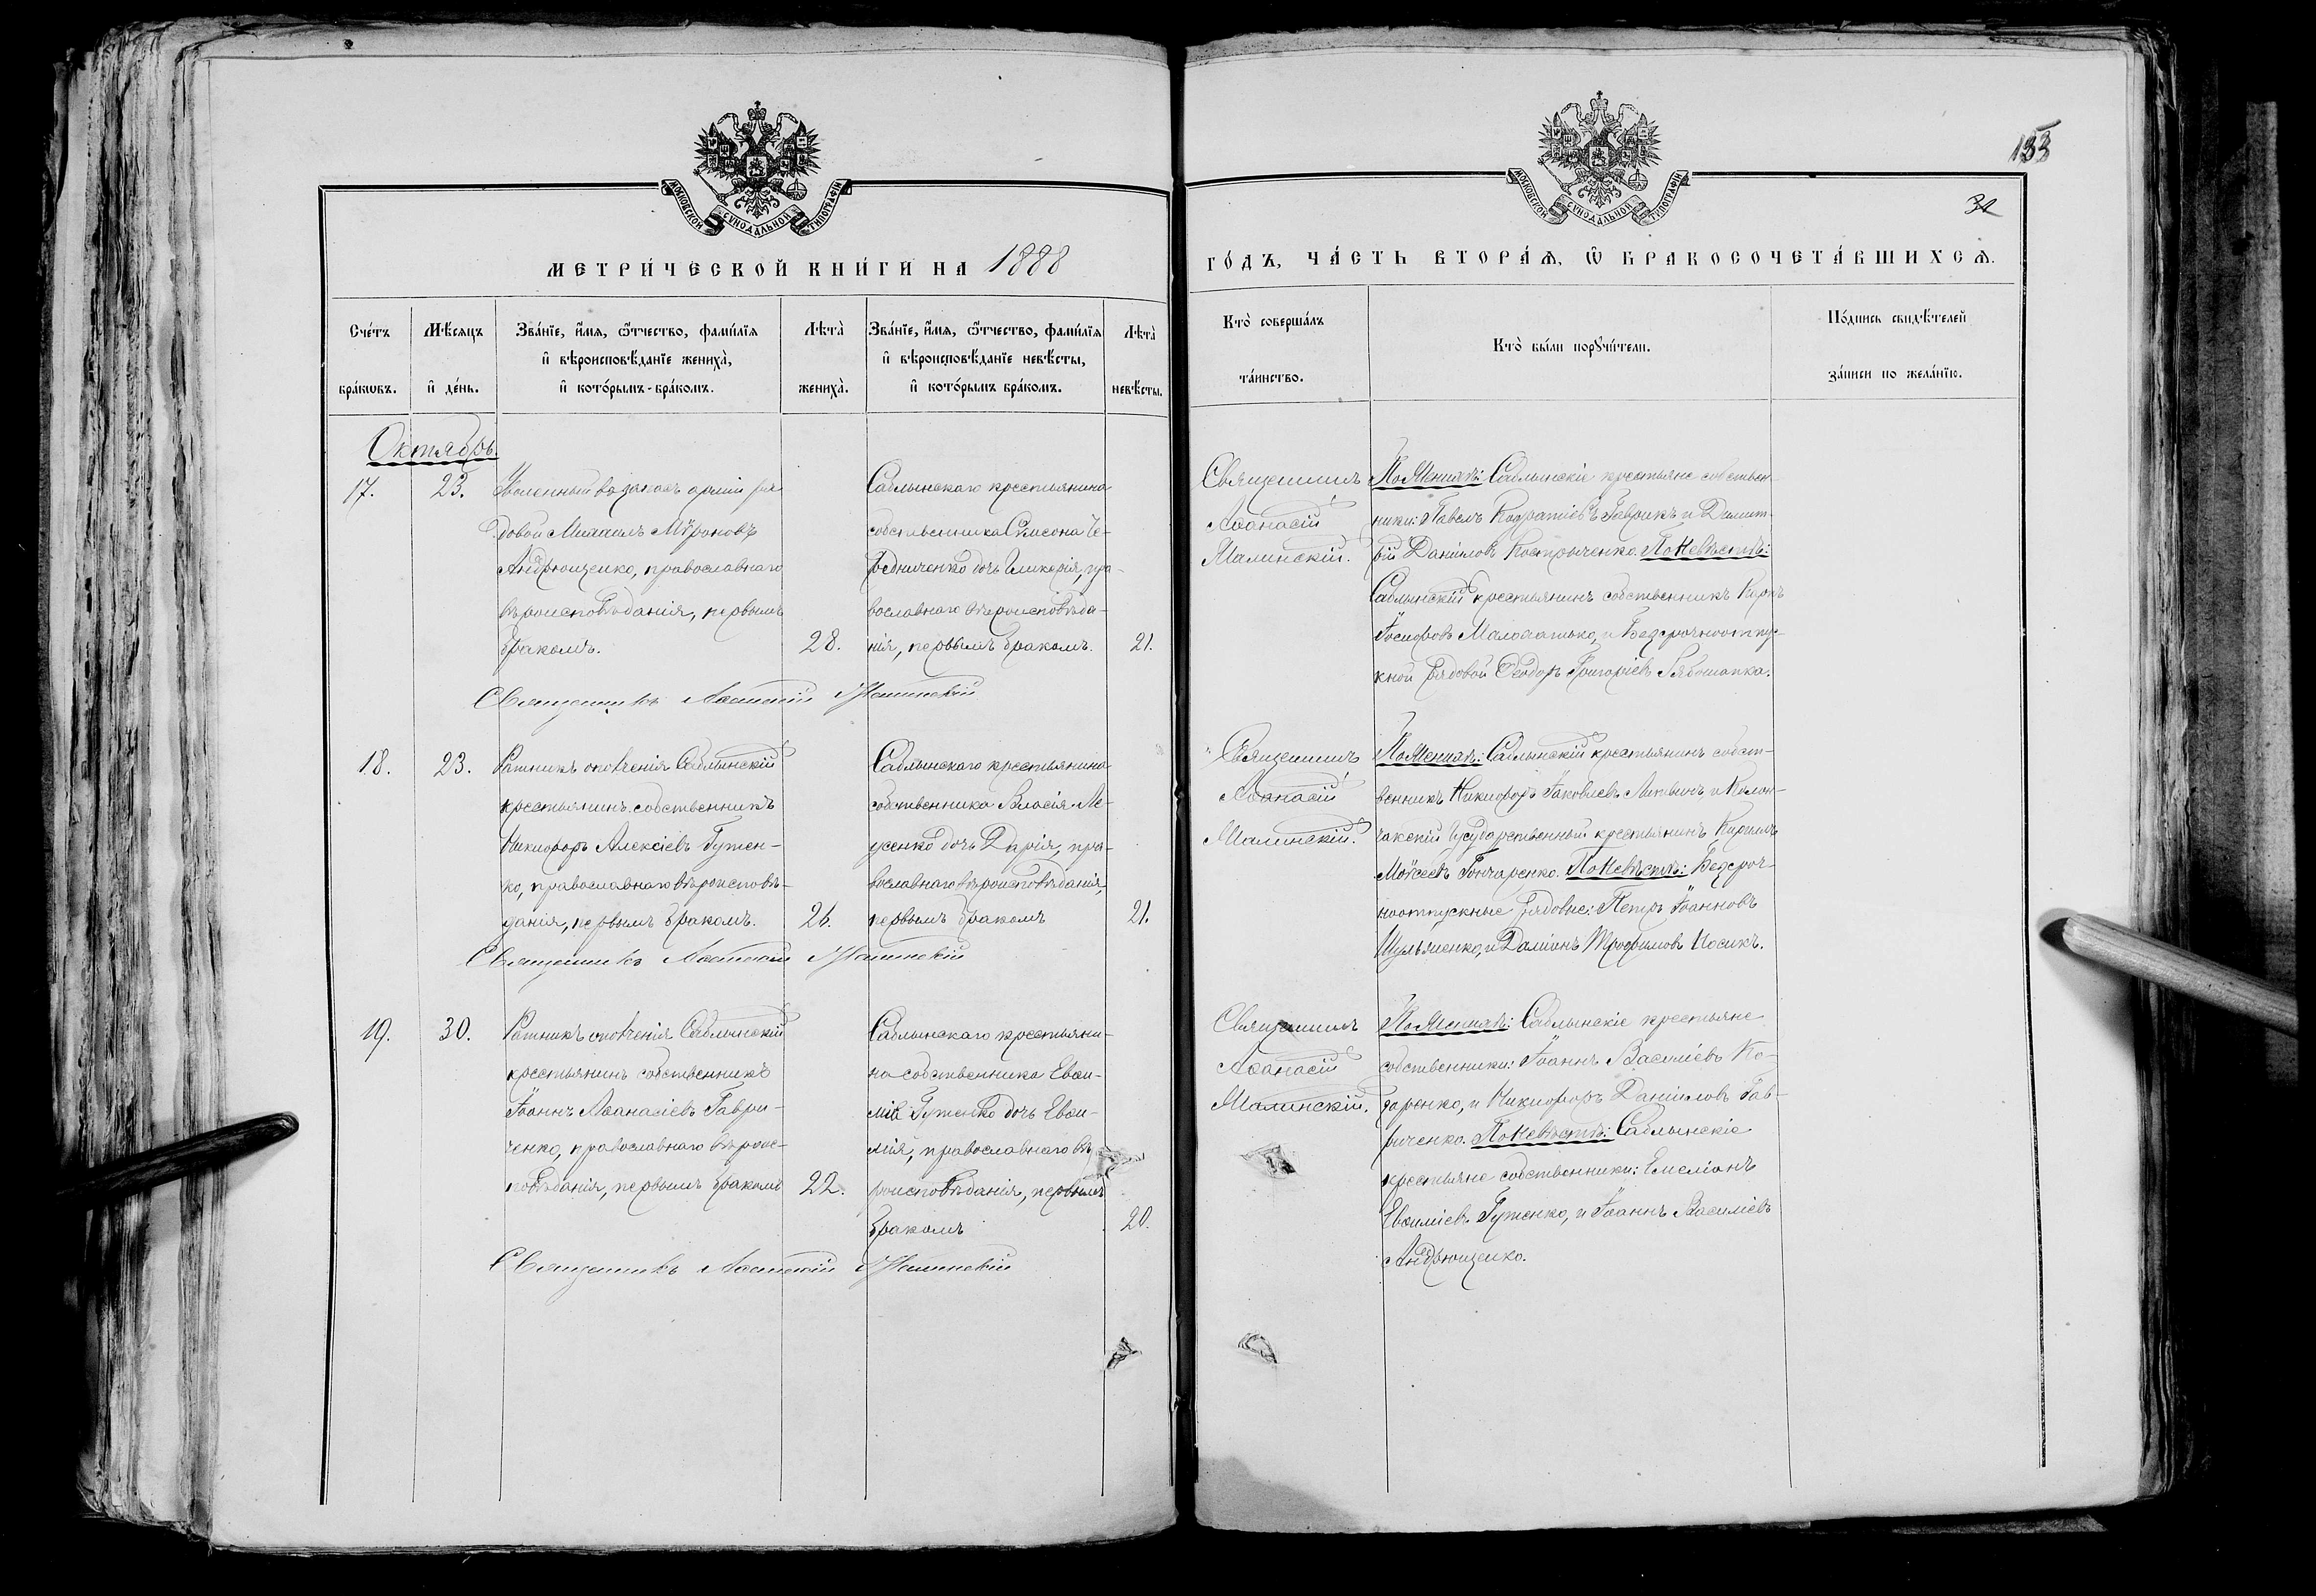 МОСКОВСКОЙ СУНОДАЛЬНОЙ ТИПОГРАФІИ
МОСКОВСКОЙ СУНОДАЛЬНОЙ ТИПОГРАФІИ
153
32
МЕТРИ́ЧЕСКОЙ КНИ́ГИ НА 1888
ГО́ДЪ, ЧА́СТЬ ВТОРА́Ѧ, Ѡ҃ БРАКОСОЧЕТА́ВШИХСѦ.
Сче́тъ бра́кѡвъ.
Мѣ́сѧцъ и҆ де́нь.
Зва́нїе, и҆́мѧ, ѻ҆́тчество, фами́лїѧ
и҆ вѣроисповѣ́данїе жениха̀,
и҆ кото́рымъ-бра́комъ.
Лѣта̀ жениха̀.
Зва́нїе, и҆́мѧ, ѻ҆́тчество, фами́лїѧ
и҆ вѣроисповѣ́данїе невѣ́сты,
и҆ кото́рымъ бра́комъ.
Лѣта̀ невѣ́сты.
Кто̀ соверша́лъ
та́инство.
Кто̀ бы́ли порꙋчи́тели.
По́дпись свидѣ́телей
за́писи по жела́нїю.
Октябрь.
17.
23.
Уволенный въ запасъ арміи ря-
довой Михаилъ Мѵроновъ
Андрющенко, православнаго
вѣроисповѣданія, первымъ
бракомъ.
28.
Саблынскаго крестьянина
собственника Сѵмеона Че-
редниченко дочь Гликерія, пра-
вославнаго вѣроисповѣда-
нія, первымъ бракомъ.
21.
Священникъ Аѳанасій Малинскій
Священникъ
Аѳанасій
Малинскій.
По Женихѣ: Саблынскіе крестьяне собствен-
ники: Павелъ Кодратіевъ Гаврикъ и Димит-
рій Даніиловъ Костръченко. По Невѣстѣ:
Саблынскій крестьянинъ собственникъ Кирилъ
Іосифовъ и Безсрочноотпус-
кной рядовой Ѳеодоръ Григоріевъ Рябошапка.
18.
23.
Ратникъ ополченія Саблынскій
крестьянинъ собственникъ
Никифоръ Алексіевъ Гутен-
ко, православнаго вѣроисповѣ-
данія, первымъ бракомъ.
26.
Саблынскаго крестьянина
собственника Власія Ле-
усенко дочь Дарія, пра-
вославнаго вѣроисповѣданія,
первымъ бракомъ
21.
Священникъ Аѳанасій Малинскій
Священникъ
Аѳанасій
Малинскій.
По Женихѣ: Саблынскій крестьянинъ собст-
венникъ Никифоръ Іаковлевъ Литвинъ и Колон-
чакскій Государственный крестьянинъ Кириллъ
Моѵсеевъ Гончаренко. По Невѣстѣ: Безсроч-
ноотпускные рядовые: Петръ Іоанновъ
Шульженко, и Даміанъ Трофимовъ Носикъ.
19.
30.
Ратникъ ополченія Саблынскій
крестьянинъ собственникъ
Іоаннъ Аѳанасіевъ Гаври-
ченко, православнаго вѣроис-
повѣданія, первымъ бракомъ
22.
Саблынскаго крестьяни-
на собственника Евѳи-
мія Гутенко дочь Евѳи-
мія, православнаго вѣ-
роисповѣданія, первымъ
бракомъ
20.
Священникъ Аѳанасій Малинскій
Священникъ
Аѳанасій
Малинскій.
По Женихѣ: Саблынскіе крестьяне
собственники: Іоаннъ Василіевъ Ко-
заренко, и Никифоръ Даніиловъ Гав-
риченко. По Невѣстѣ: Саблынскіе
крестьяне собственники: Емеліанъ
Евѳиміевъ Гутенко, и Іоаннъ Василіевъ
Андрющенко.